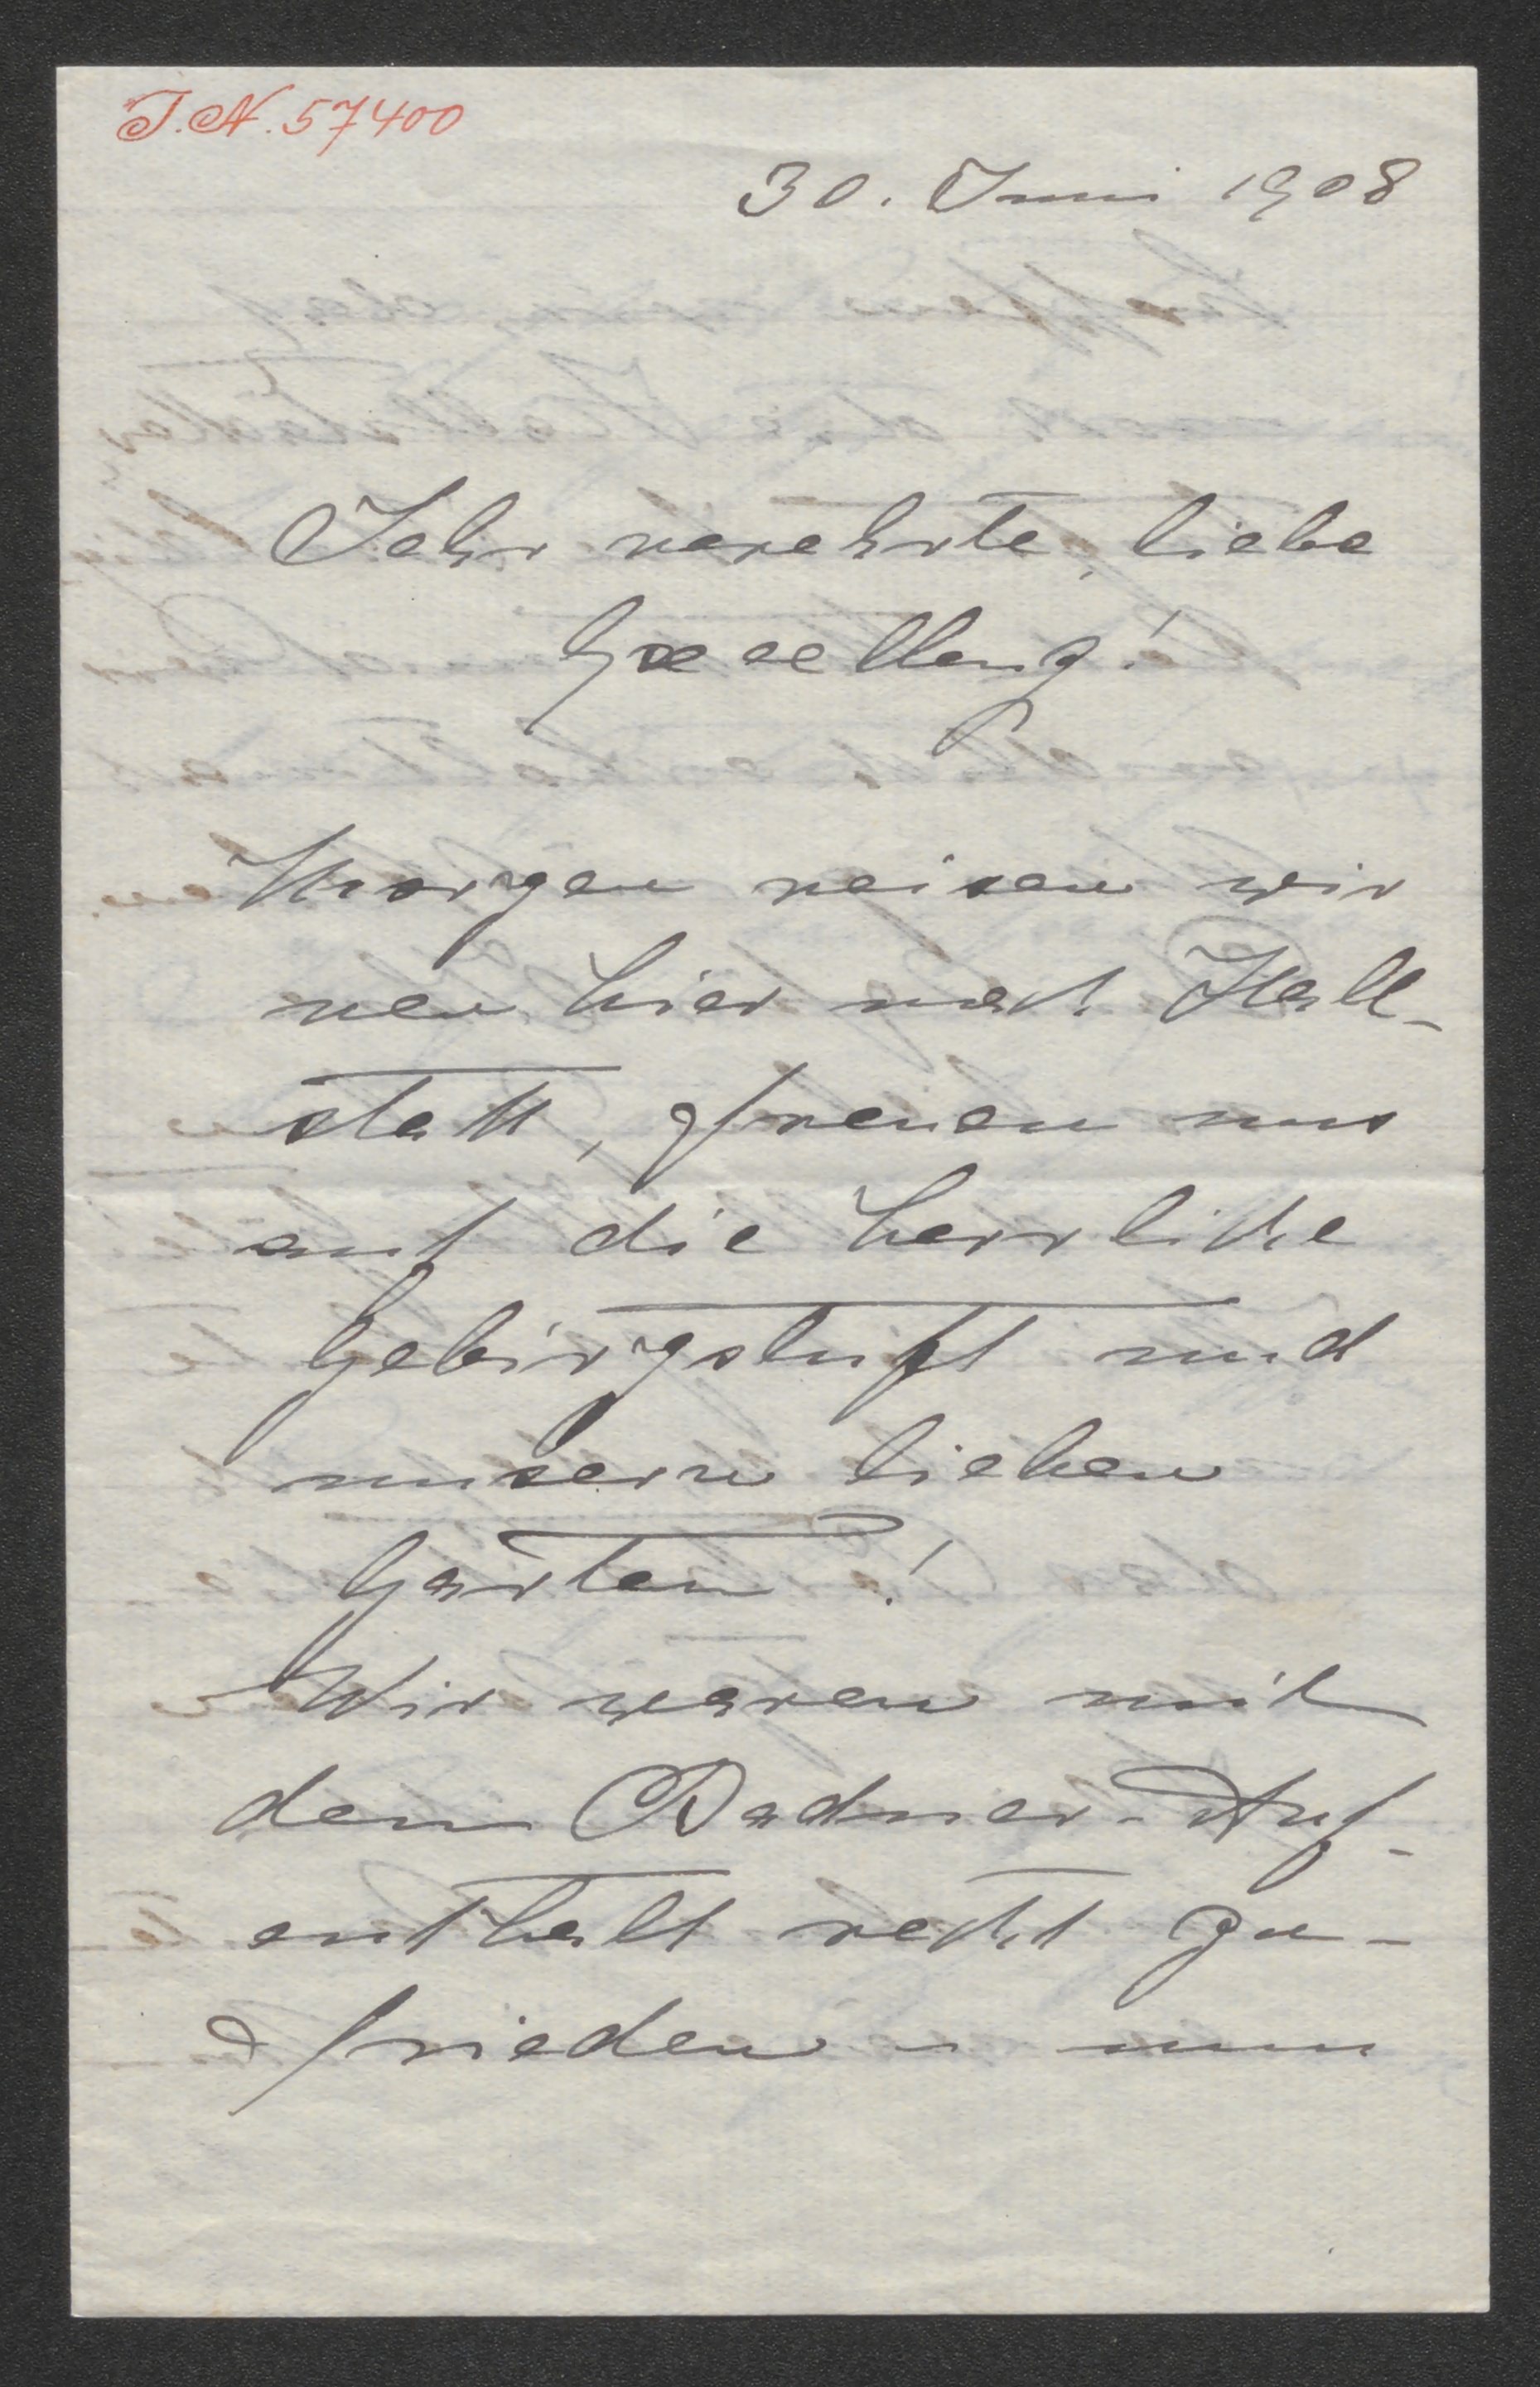 J.N. 57400
30. Juni 1908
Sehr verehrte, liebe
Excellenz!
Morgen reisen wir
von hier nach Hall-
statt, freuen uns
auf die herrliche
Gebirgsluft und
unsern lieben
Garten!
Wir waren mit
dem Badner-Auf-
enthalt recht zu-
frieden u nun